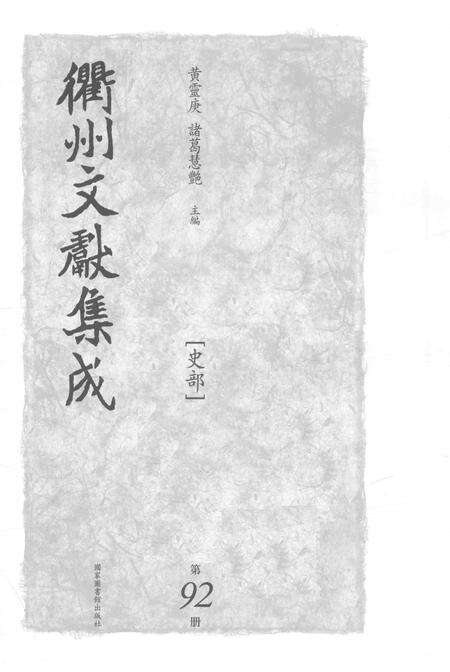 衢州文獻集成
黃靈庚 諸葛慧艷 主編
[史部]
第
92
册
國家圖書館出版社